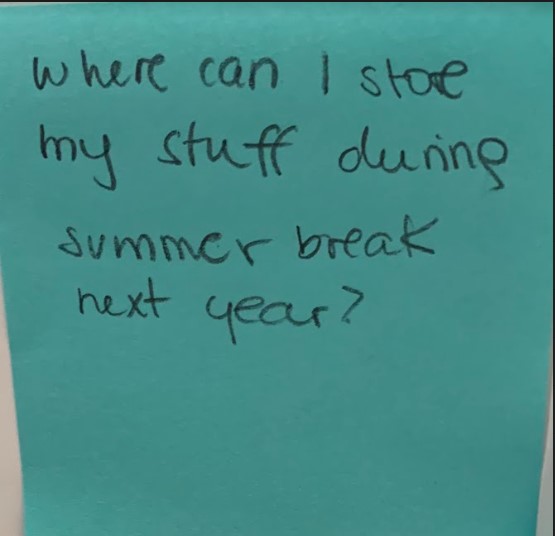 where can I store
my stuff during
summer break
next year?